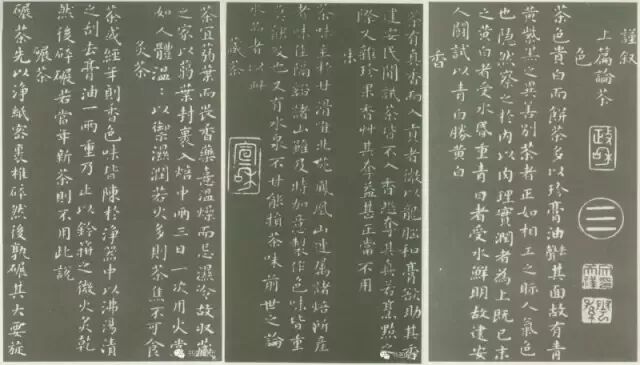 謹叙
上篇論茶
色
茶色貴白而餅茶多以珍膏油其面故有青
黄紫黑之異善別茶者正如相工之眎人氣色
也隠然察之於内以肉理實潤者為上既已末
之黄白者受水昏重青白者受水鮮明故建安
人鬭試以青白勝黄白
香
政和
茶有真香而入貢者微以龍腦和膏欲助其香
建安民間試茶皆不入香恐奪其真若烹點之
際又雜珍果香艸其奪益甚正當不用
味
茶味主於甘滑惟北苑鳳凰山連屬諸焙所産
者味佳隔谿諸山雖及時加意製作色味皆重
莫能及也又有水泉不甘能損茶味前世之論
水品者以此
藏茶
宣和
茶宜蒻葉而畏香藥喜温燥而忌濕冷故收藏
之家以蒻葉封裹入焙中兩三日一次用火常
如人體温:以禦濕潤若火多則茶焦不可食
炙茶
茶或經年則香色味皆陳於淨器中以沸湯漬
之刮去膏油一兩重乃止以鈐箝之微火炙乾
然後碎碾若當年新茶則不用此說
碾茶
碾茶先以淨紙密裹椎碎然後熟碾其大要旋